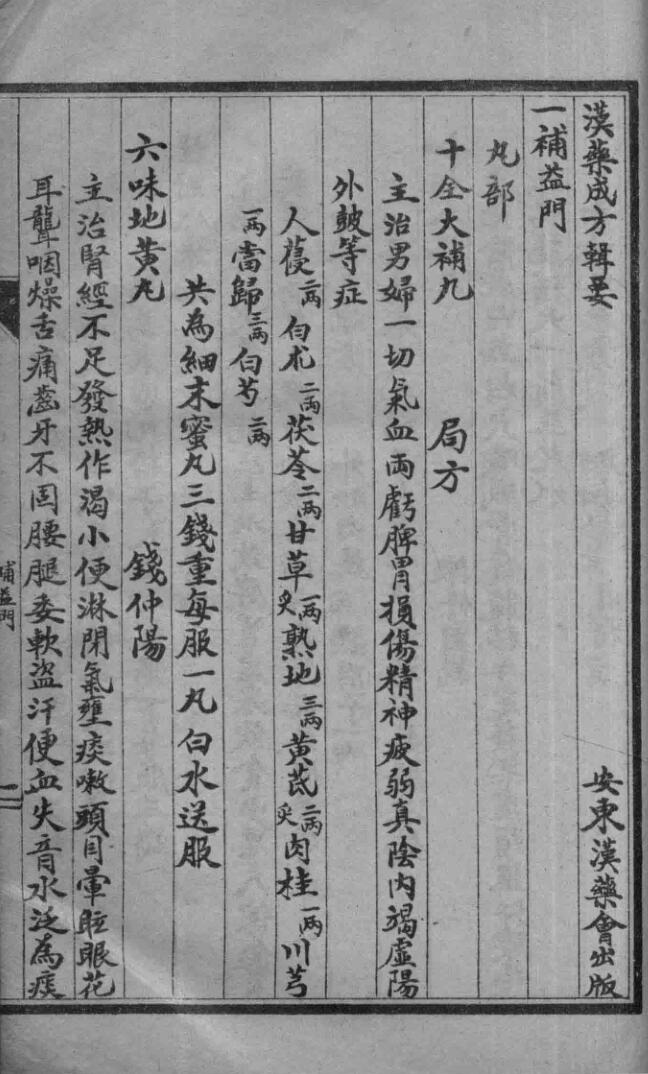 漢藥成方輯要 安東漢藥會出版
一補益門
丸部
十全大補丸 局方
主治男婦一切氣血両虧脾胃損傷精神疲弱真陰内竭虛陽
外皷等症
人葠二両白朮二両茯苓二両甘草炙一両熟地三両黃芪炙二両肉桂一両川芎
一両當歸三両白芍二両
共為細末蜜丸三錢重每服一丸白水送服
六味地黃丸 錢仲陽
主治腎經不足發熱作渴小便淋閉氣壅痰嗽頭目暈眩眼花
耳聾咽燥舌痛齒牙不固腰腿委軟盜汗便血失音水泛為痰
補益門 一